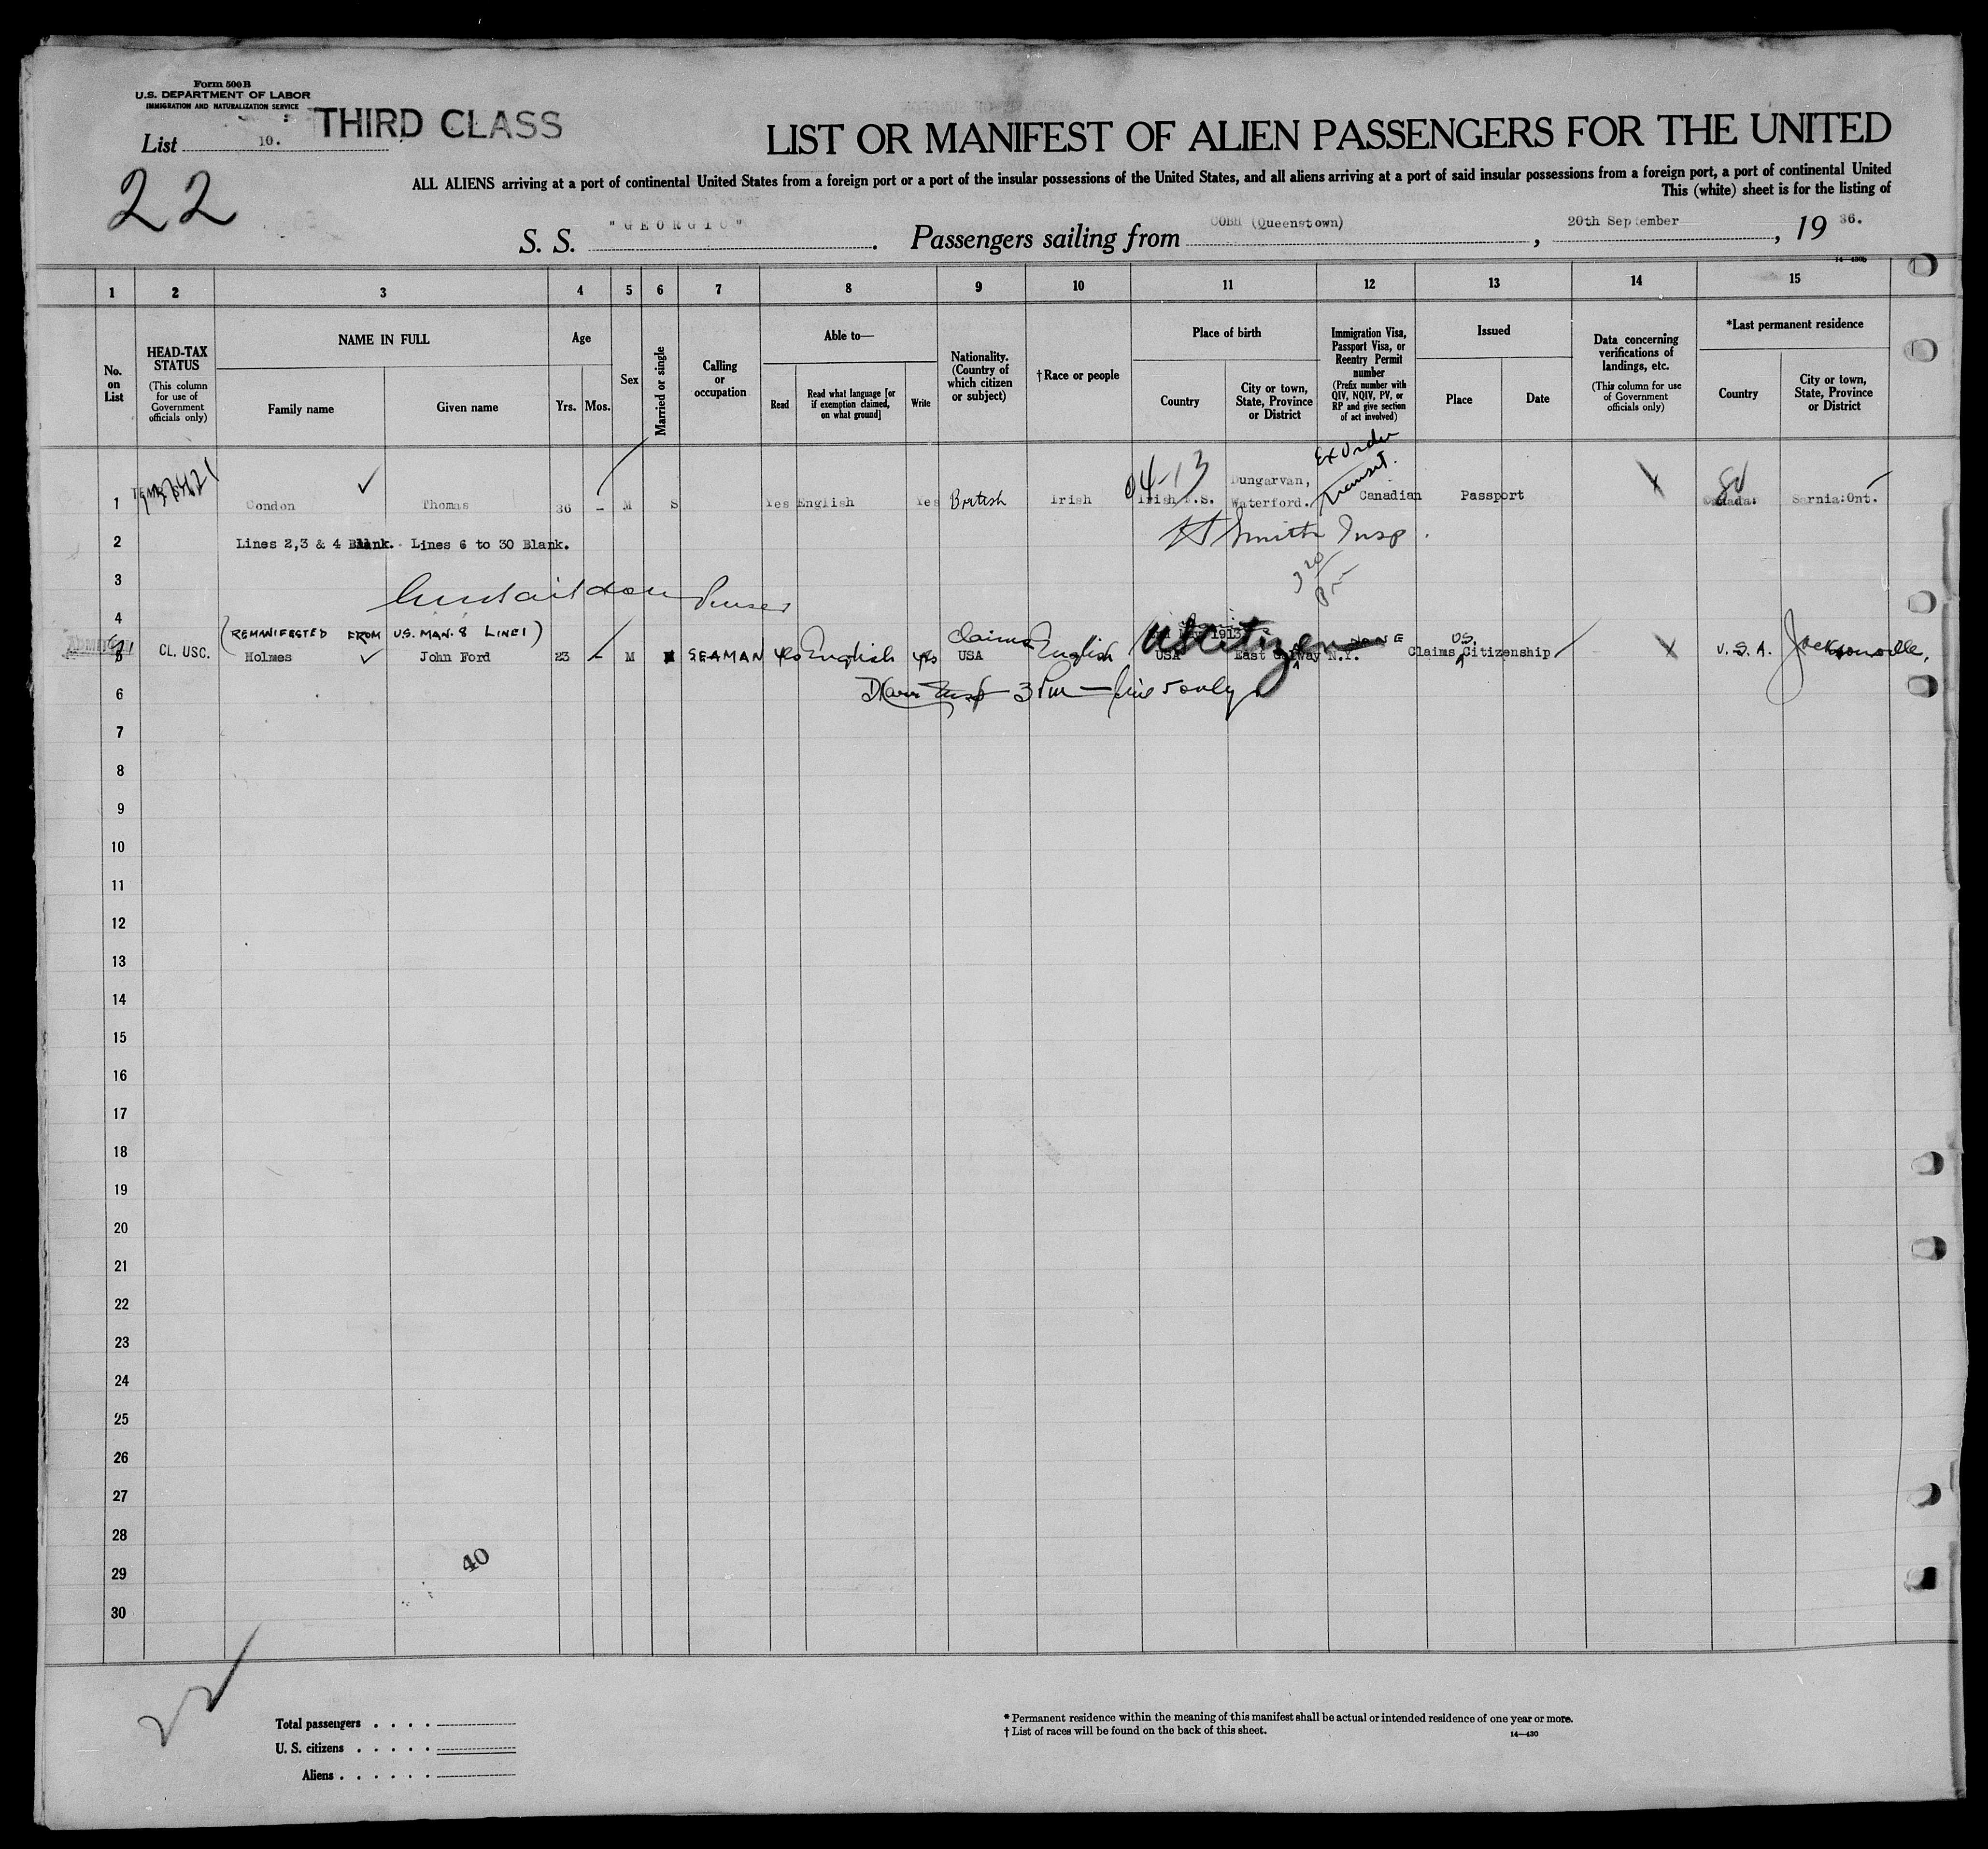 Form 500B
U.S. DEPARTMENT OF LABOR
IMMIGRATION AND NATURALIZATION SERVICE
THIRD CLASS
List 10.
22
LIST OR MANIFEST OF ALIEN PASSENGERS FOR THE UNITED
ALL ALIENS arriving at a port of continental United States from a foreign port or a port of the insular possessions of the United States, and all aliens arriving at a port of said insular possessions from a foreign port, a port of continental United
This (white) sheet is for the listing of
S. S. "GEORGIC". Passengers sailing from COBH (Queenstown), 20th September, 1936.
14-430b
1 2 3 4 5 6 7 8 9 10 11 12 13 14 15
No. on List
HEAD-TAX STATUS (This column for use of Government officials only)
NAME IN FULL
Family name
Given name
Age
Yrs.
Mos.
Sex
Married or single
Calling or occupation
Able to—
Read
Read what language [or if exemption claimed, on what ground]
Write
Nationality. (Country of which citizen or subject)
†Race or people
Place of birth
Country
City or town, State, Province or District
Immigration Visa, Passport Visa, or Reentry Permit number (Prefix number with QIV, NQIV, PV, or RP and give section of act involved)
Issued
Place
Date
Data concerning verifications of landings, etc. (This column for use of Government officials only)
*Last permanent residence
Country
City or town, State, Province or District
Ex Order
Transit.
04-13
1 Condon Thomas 36 - M S Yes English Yes British Irish Irish F.S. Dungarvan, Waterford. Canadian Passport Canada: Sarnia:Ont.
2 Lines 2,3 & 4 Blank. Lines 6 to 30 Blank.
Smith Insp.
3
Purser
4 (REMANIFESTED FROM U.S. MAN. 8 LINE 1)
5 CL. USC. Holmes John Ford 23 - M SEAMAN yes English yes Claims USA English USA East Galway N.Y. NONE Claims US. Citizenship U.S.A. Jacksonville,
1913
US Citizen
6 3 PM — line 5 only
7
8
9
10
11
12
13
14
15
16
17
18
19
20
21
22
23
24
25
26
27
28
29
30
40
Total passengers
U. S. citizens
Aliens
* Permanent residence within the meaning of this manifest shall be actual or intended residence of one year or more.
† List of races will be found on the back of this sheet.
14-430